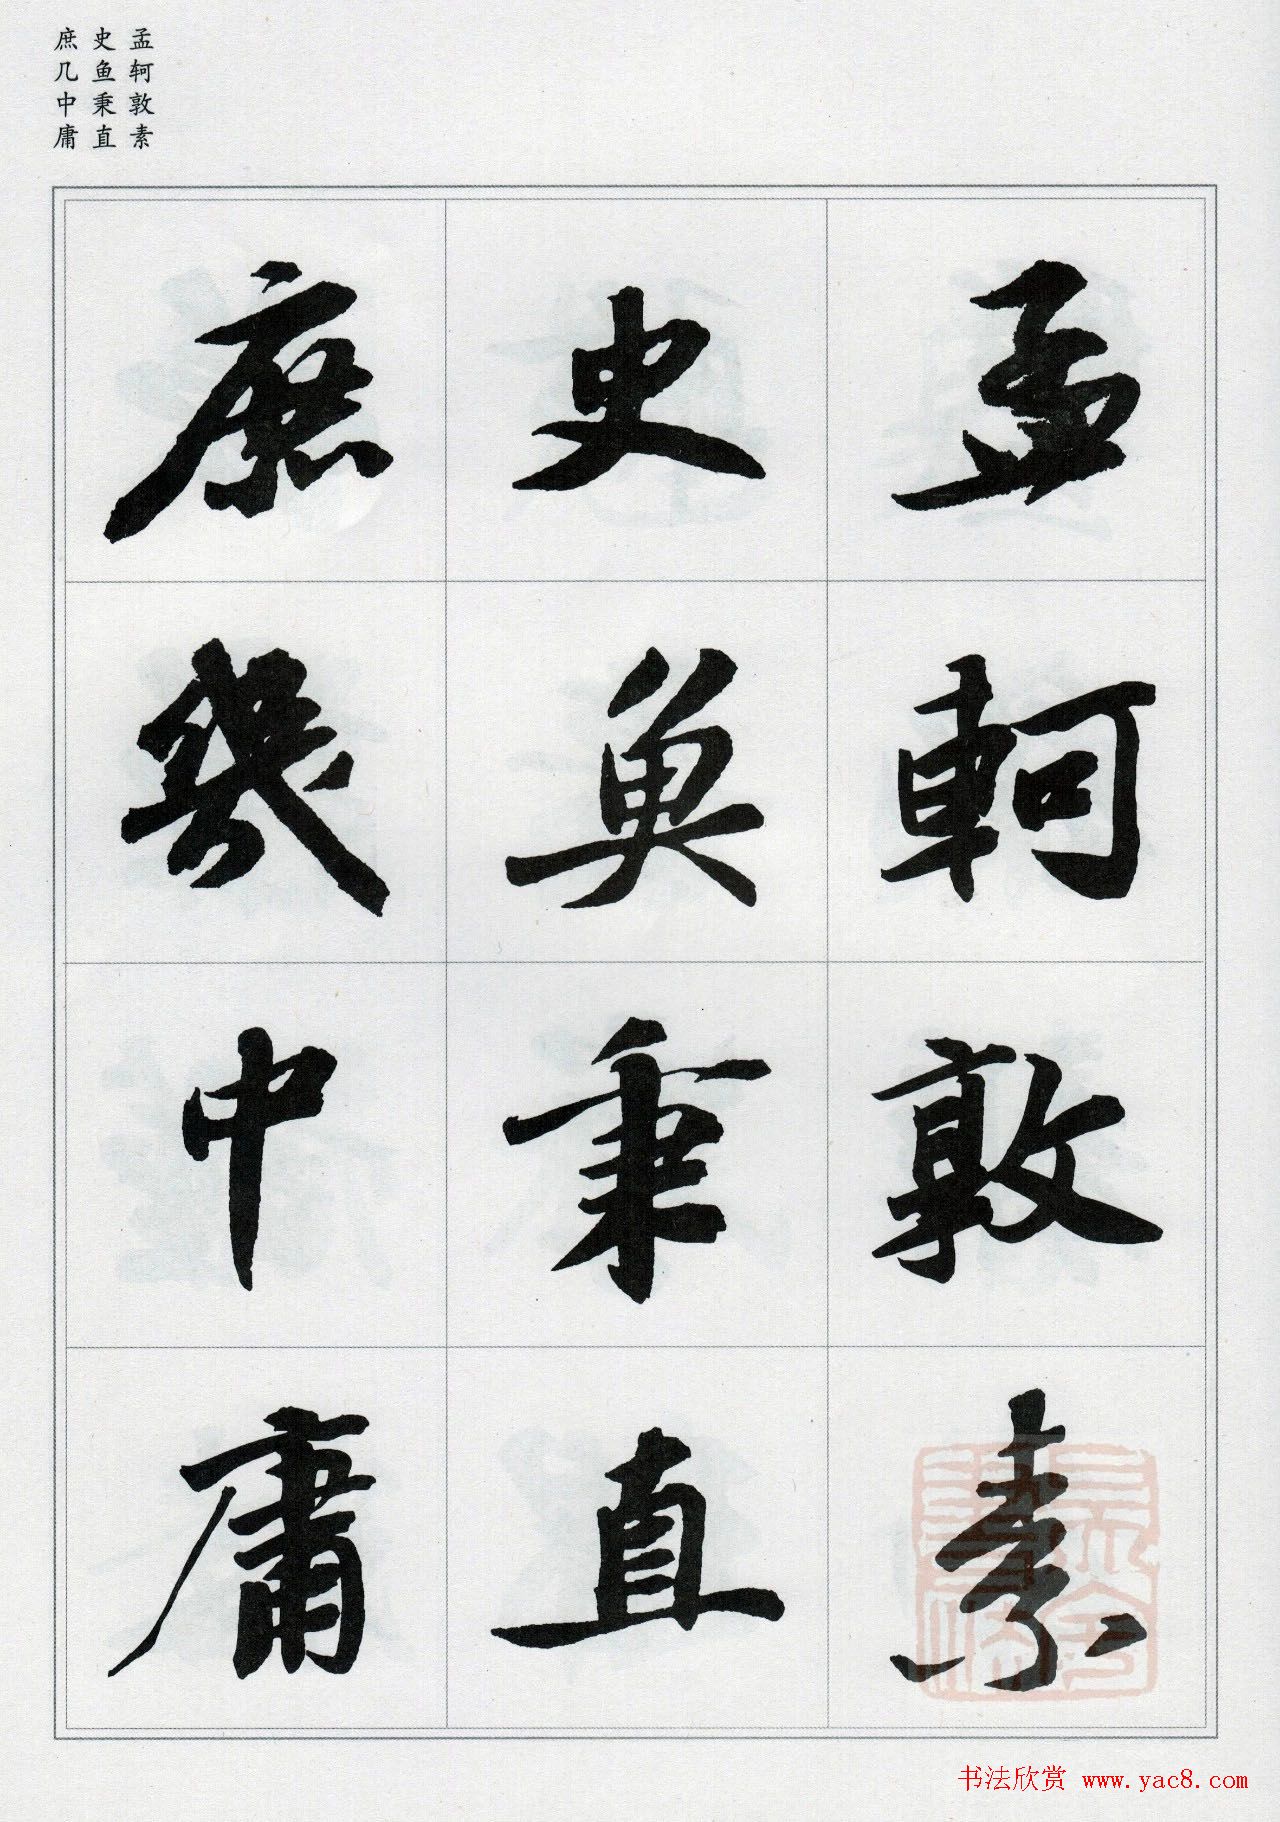 孟轲敦素
史鱼秉直
庶几中庸
孟軻敦素
史魚秉直
庶幾中庸
书法欣赏 www.yac8.com